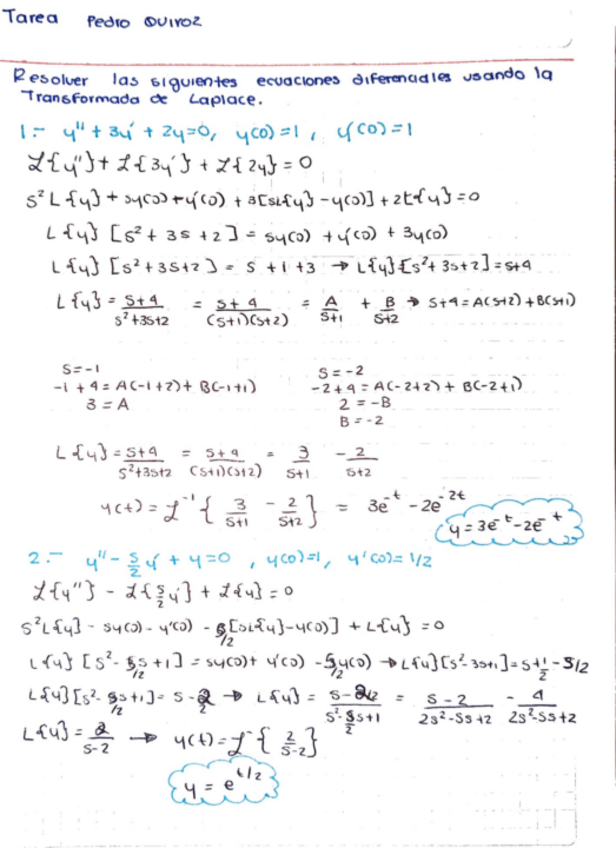 Tarea Pedro Quiroz
Resolver las siguientes ecuaciones diferenciales usando la
Transformada de Laplace.
1.- y'' + 3y' + 2y=0, y(0)=1, y'(0)=1
ℒ{y''} + ℒ{3y'} + ℒ{2y} = 0
s²L{y} + sy(0) + y'(0) + 3[sL{y} - y(0)] + 2ℒ{y} = 0
L{y} [s² + 3s + 2] = sy(0) + y'(0) + 3y(0)
L{y} [s² + 3s + 2] = s + 1 + 3 → L{y}[s² + 3s + 2] = s+4
L{y} = s+4/s²+3s+2 = s+4/(s+1)(s+2) = A/s+1 + B/s+2 → s+4 = A(s+2) + B(s+1)
s=-1 s=-2
-1+4 = A(-1+2) + B(-1+1) -2+4 = A(-2+2) + B(-2+1)
3 = A 2 = -B
B = -2
L{y} = s+4/s²+3s+2 = s+4/(s+1)(s+2) = 3/s+1 - 2/s+2
y(t) = ℒ⁻¹{3/s+1 - 2/s+2} = 3e^-t - 2e^-2t
y = 3e^-t - 2e^-t
2.- y'' - 5/2 y' + y=0, y(0)=1, y'(0)=1/2
ℒ{y''} - ℒ{5/2 y'} + ℒ{y} = 0
s²L{y} - sy(0) - y'(0) - 5/2[sL{y} - y(0)] + L{y} = 0
L{y} [s² - 5/2 s + 1] = sy(0) + y'(0) - 5/2 y(0) → L{y}[s² - 3s+1] = s + 1/2 - 5/2
L{y}[s² - 5/2 s + 1] = s - 2 → L{y} = s-2/s²-5/2 s+1 = s-2/2s²-5s+2 - 4/2s²-5s+2
L{y} = 2/s-2 → y(t) = ℒ⁻{2/s-2}
y = e^t/2